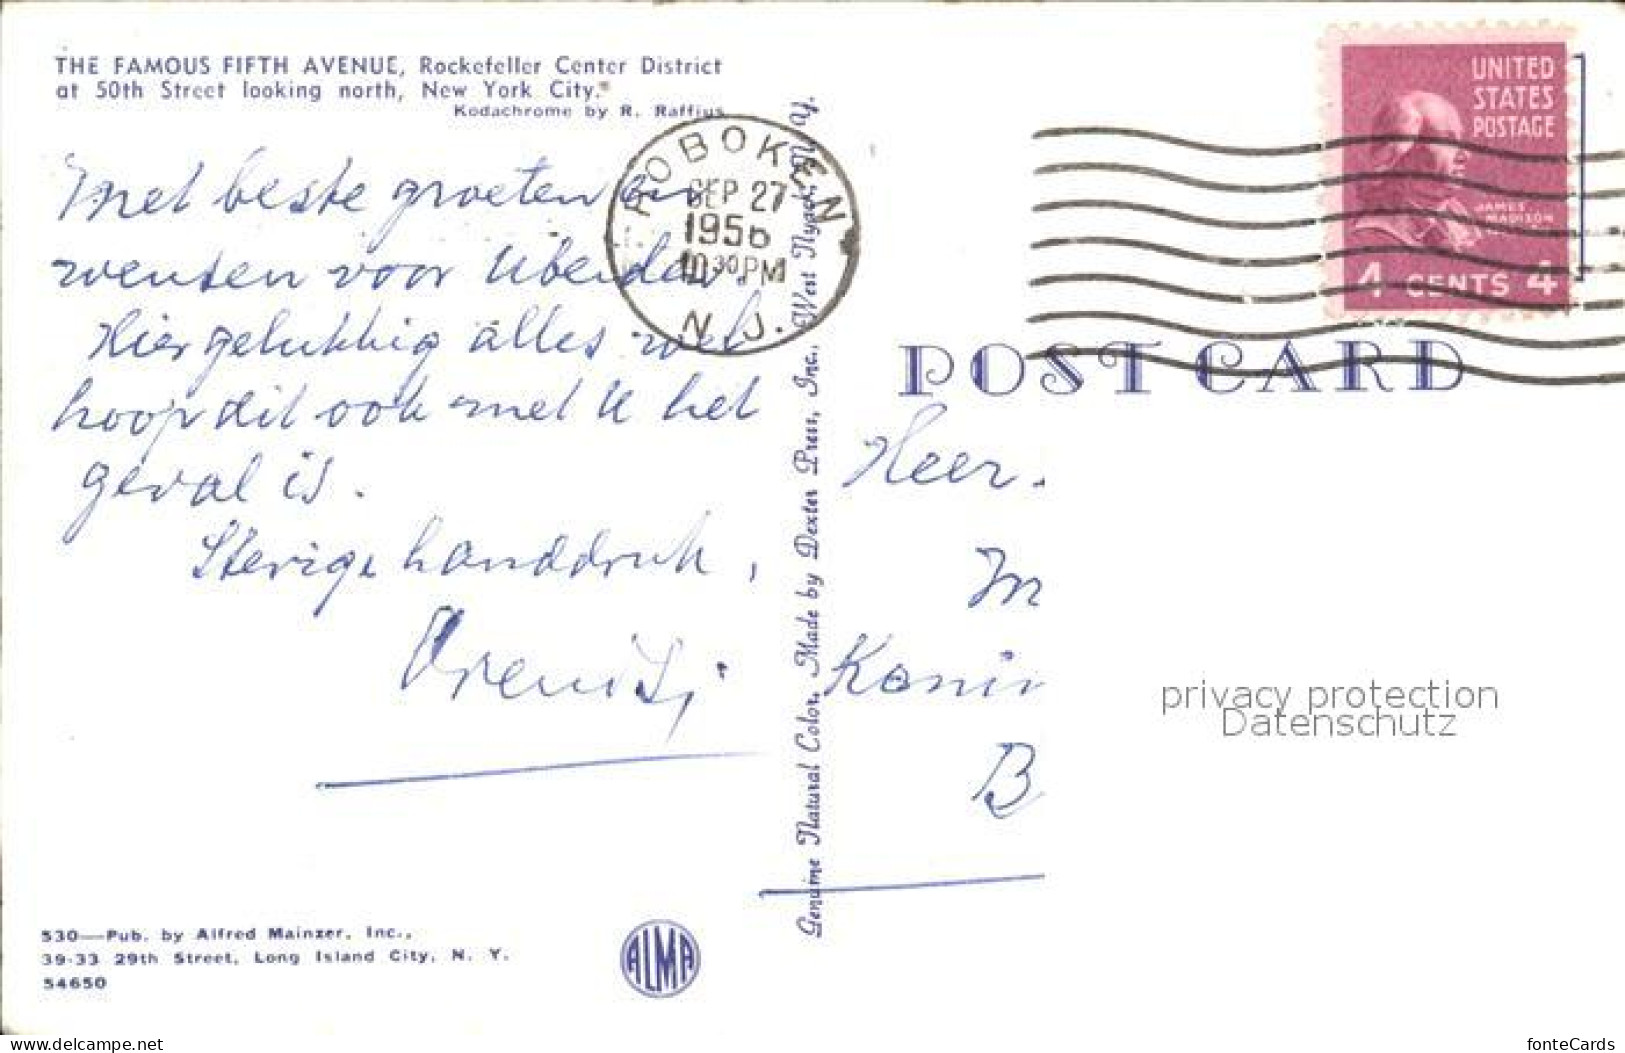 THE FAMOUS FIFTH AVENUE, Rockefeller Center District
at 50th Street looking north, New York City.
Kodachrome by R. Raffius
Met beste groeten en
wensen voor U beiden
Hier gelukkig alles wel
hoop dit ook met U het
geval is.
Stevige handdruk,
HOBOKEN
SEP 27
1956
10 30 PM
N. J.
Genuine Natural Color, Made by Dexter Press, Inc., West Nyack, N. Y.
UNITED
STATES
POSTAGE
JAMES
MADISON
4 CENTS 4
POST CARD
Heer.
M
Konin
B
privacy protection
Datenschutz
530—Pub. by Alfred Mainzer, Inc.,
39-33 29th Street, Long Island City, N. Y.
54650
ALMA
www.delcampe.net
fonteCards